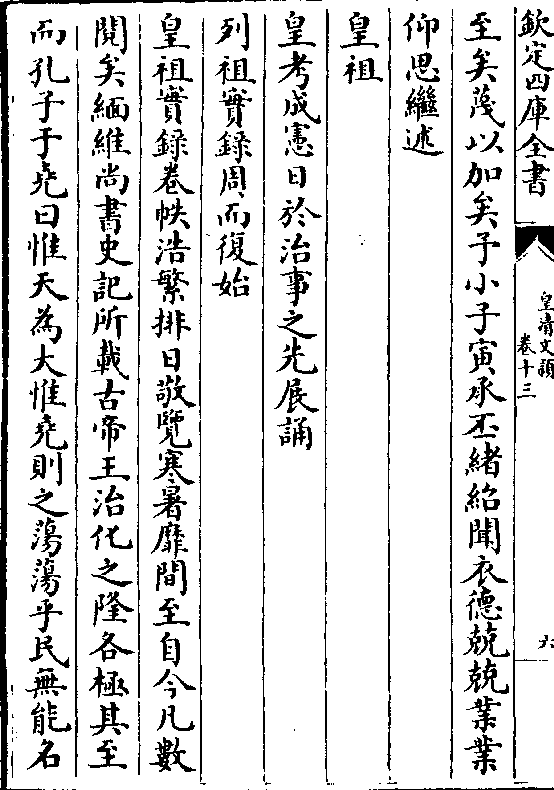 欽定四庫全書
皇清文頴
卷十三
六
至矣蔑以加矣予小子寅承丕緒紹聞衣德兢兢業業
仰思繼述
皇祖
皇考成憲日於治事之先展誦
列祖實録周而復始
皇祖實録卷帙浩繁排日敬覽寒暑靡間至自今凡數
閱矣緬維尚書史記所載古帝王治化之隆各極其至
而孔子于堯曰惟天為大惟堯則之蕩蕩乎民無能名